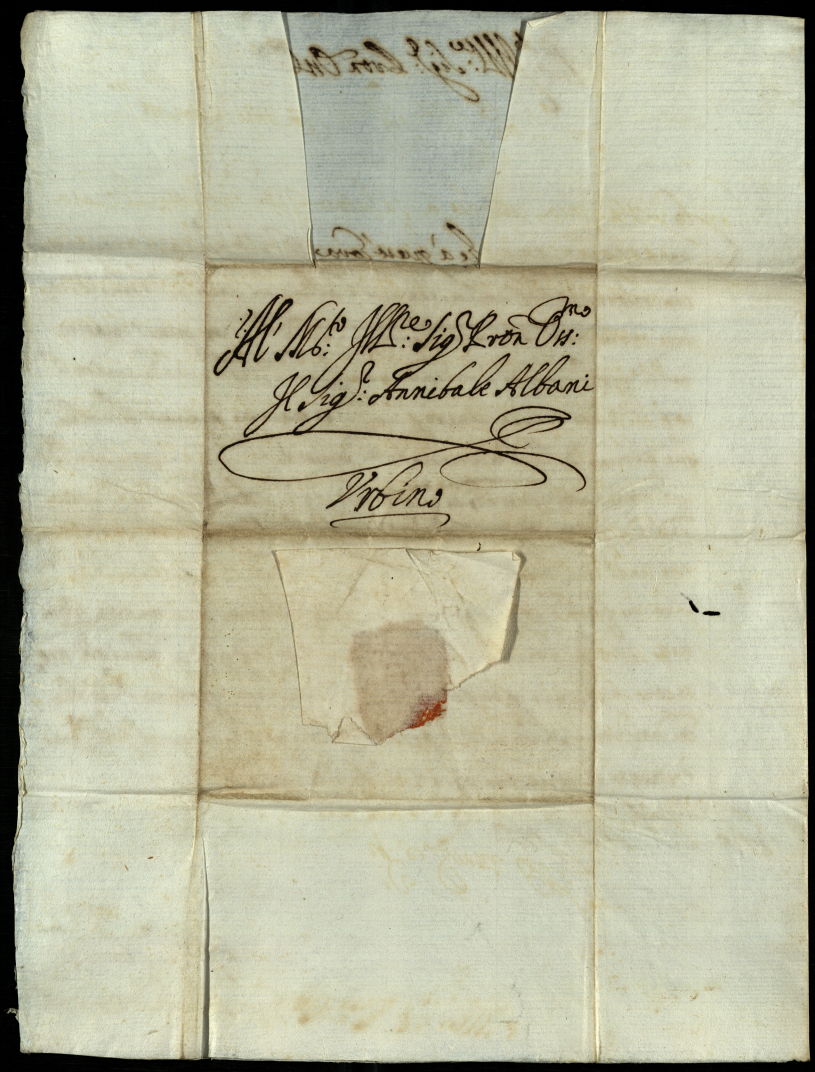 Al Mo:to Ill:re Sig:r Pron Oss:mo
Il Sig:r Annibale Albani
Urbino